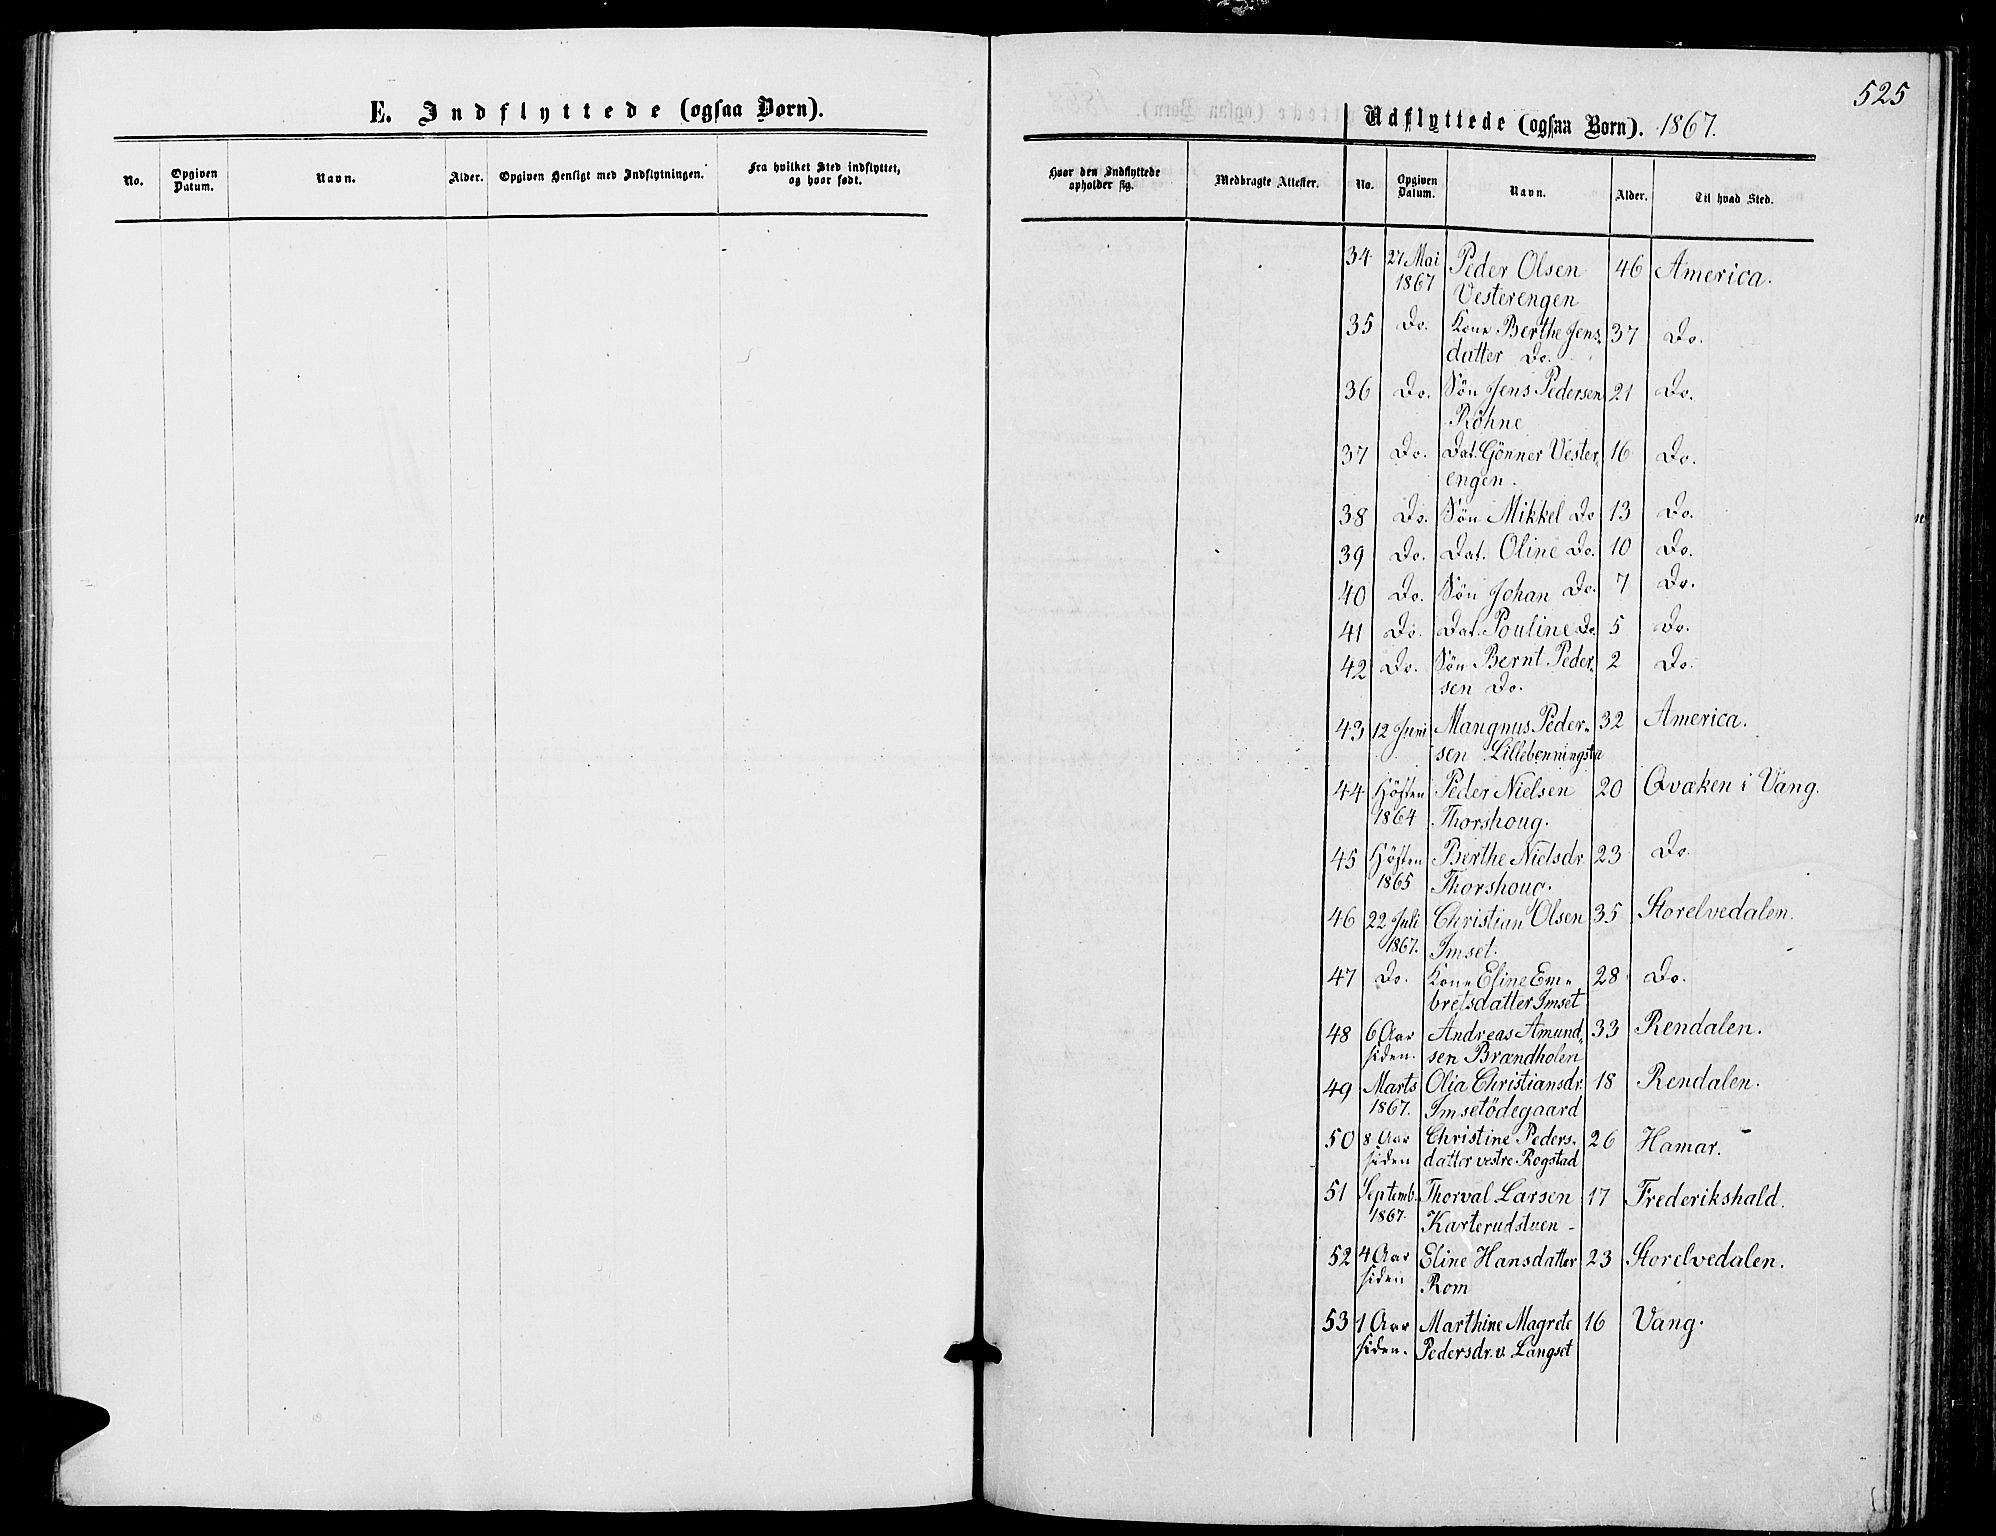 E. Indflyttede (ogsaa Børn).
No.
Opgiven Datum.
Navn.
Alder.
Opgiven Hensigt med Indflytningen.
Fra hvilket Sted indflyttet, og hvor født.
525
Udflyttede (ogsaa Børn). 1867.
Hvor den Indflyttede opholder sig.
Medbragte Attester.
No.
Opgiven Datum.
Navn.
Alder.
Til hvad Sted.
34 27 Mai Peder Olsen 46 America.
1867 Vesterengen
35 Do. Kone Berthe Jens- 37 Do.
datter Do.
36 Do. Søn Jens Pedersen 21 Do.
Röhne
37 Do. Dat. Gönner Vester- 16 Do.
engen.
38 Do. Søn Mikkel Do 13 Do.
39 Do. Dat. Oline Do. 10 Do.
40 Do. Søn Johan Do. 7 Do.
41 Do. Dat. Pouline Do. 5 Do.
42 Do. Søn Bernt Peder- 2 Do.
sen Do.
43 12 Juni Mangnus Peder- 32 America.
sen Lillebenningsta
44 Høsten Peder Nielsen 20 Qvæken i Vang.
1864 Thorshoug.
45 Høsten Berthe Nielsdr. 23 Do.
1865 Thorshoug.
46 22 Juli Christian Olsen 35 Storelvedalen.
1867. Imset.
47 Do. Kone Eline Em- 28 Do.
bretsdatter Imset
48 6 Aar Andreas Amund- 33 Rendalen.
siden. sen Brændholen
49 Marts Olia Christiansdr. 18 Rendalen.
1867. Imsetödegaard
50 8 Aar Christine Peders- 26 Hamar.
siden datter vestre Rogstad
51 Septemb. Thorval Larsen 17 Frederikshald.
1867. Karterudstuen
52 4 Aar Eline Hansdatter 23 Storelvedalen.
siden Rom
53 1 Aar Marthine Magrete 16 Vang.
siden. Pedersdr. v. Langset